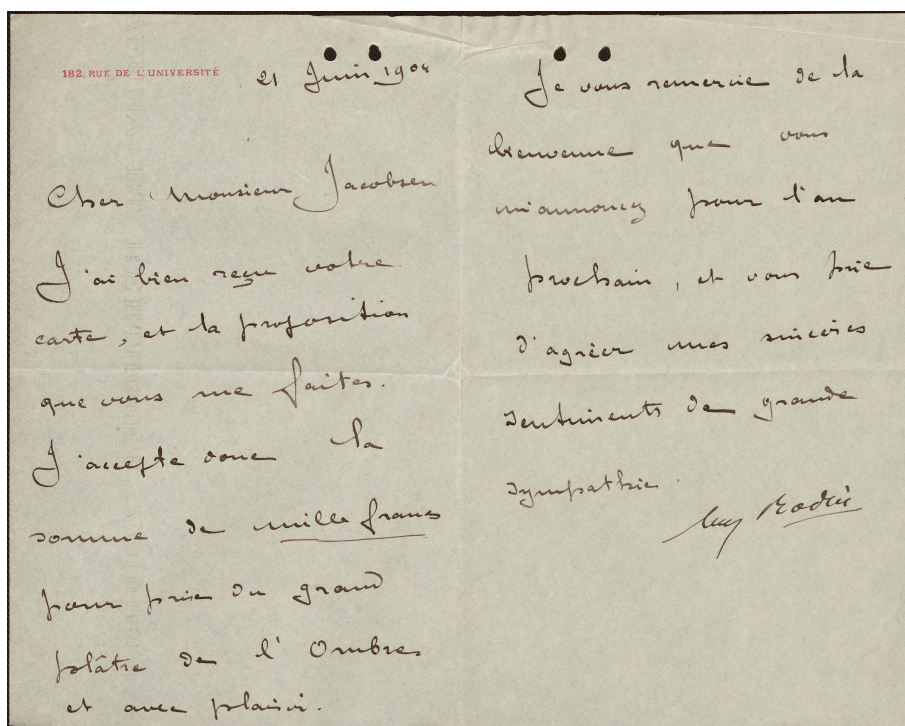 182, RUE DE L'UNIVERSITÉ
21 Juin 1904
Cher Monsieur Jacobsen
J'ai bien reçu votre
carte, et la proposition
que vous me faites.
J'accepte donc la
somme de mille francs
pour prix du grand
plâtre de l'Ombres
et avec plaisir.
Je vous remercie de la
bienvenue que vous
m'annoncez pour l'an
prochain, et vous prie
d'agréer mes sincères
sentiments de grande
sympathie.
Aug Rodin